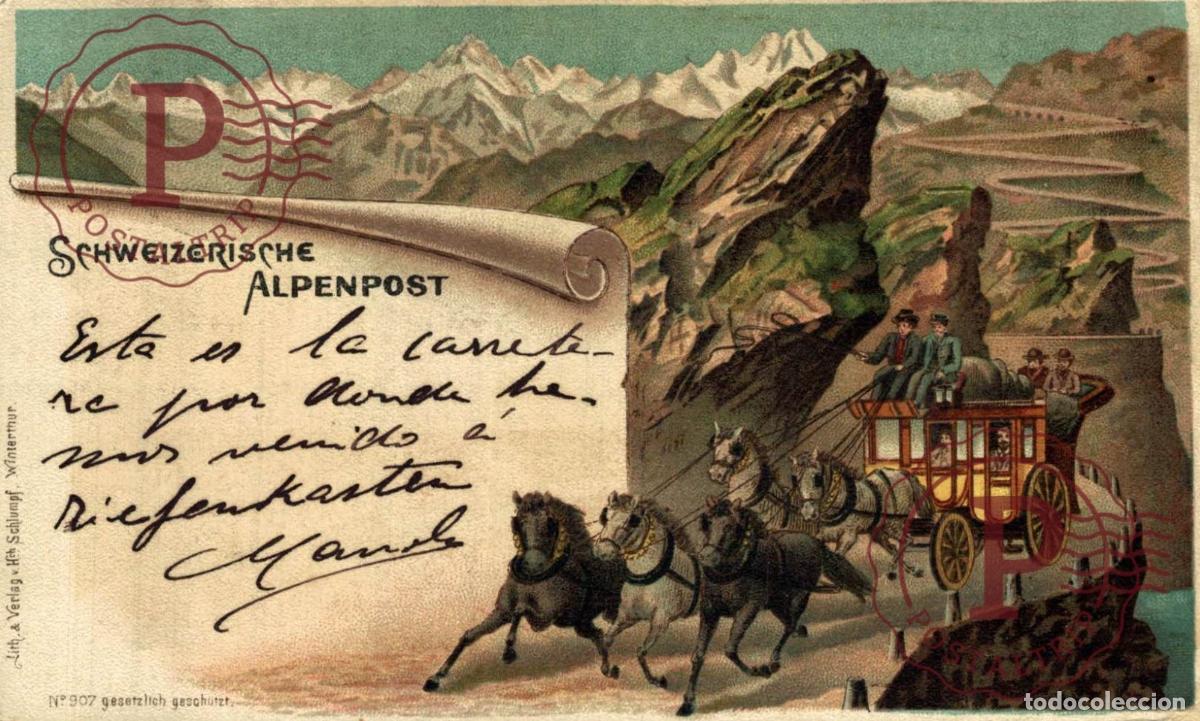 SCHWEIZERISCHE
ALPENPOST
Esta es la carrete-
ra por donde he-
mos venido á
Tiefenkasten
Manolo
Lith. & Verlag v. Hch Schlumpf, Winterthur
No 907 gesetzlich geschützt.
P
POSTALTRIP
P
POSTALTRIP
todocoleccion